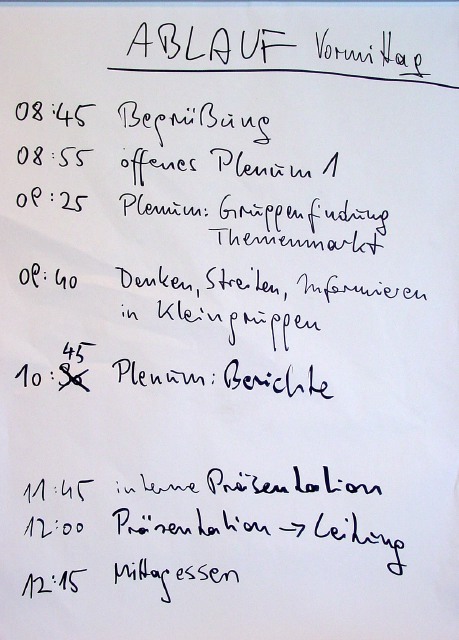 ABLAUF Vormittag
08:45 Begrüßung
08:55 offenes Plenum 1
09:25 Plenum: Gruppenfindung
Themenmarkt
09:40 Denken, Streiten, Informieren
in Kleingruppen
10:45 Plenum: Berichte
11:45 interne Präsentation
12:00 Präsentation → Leitung
12:15 Mittagessen